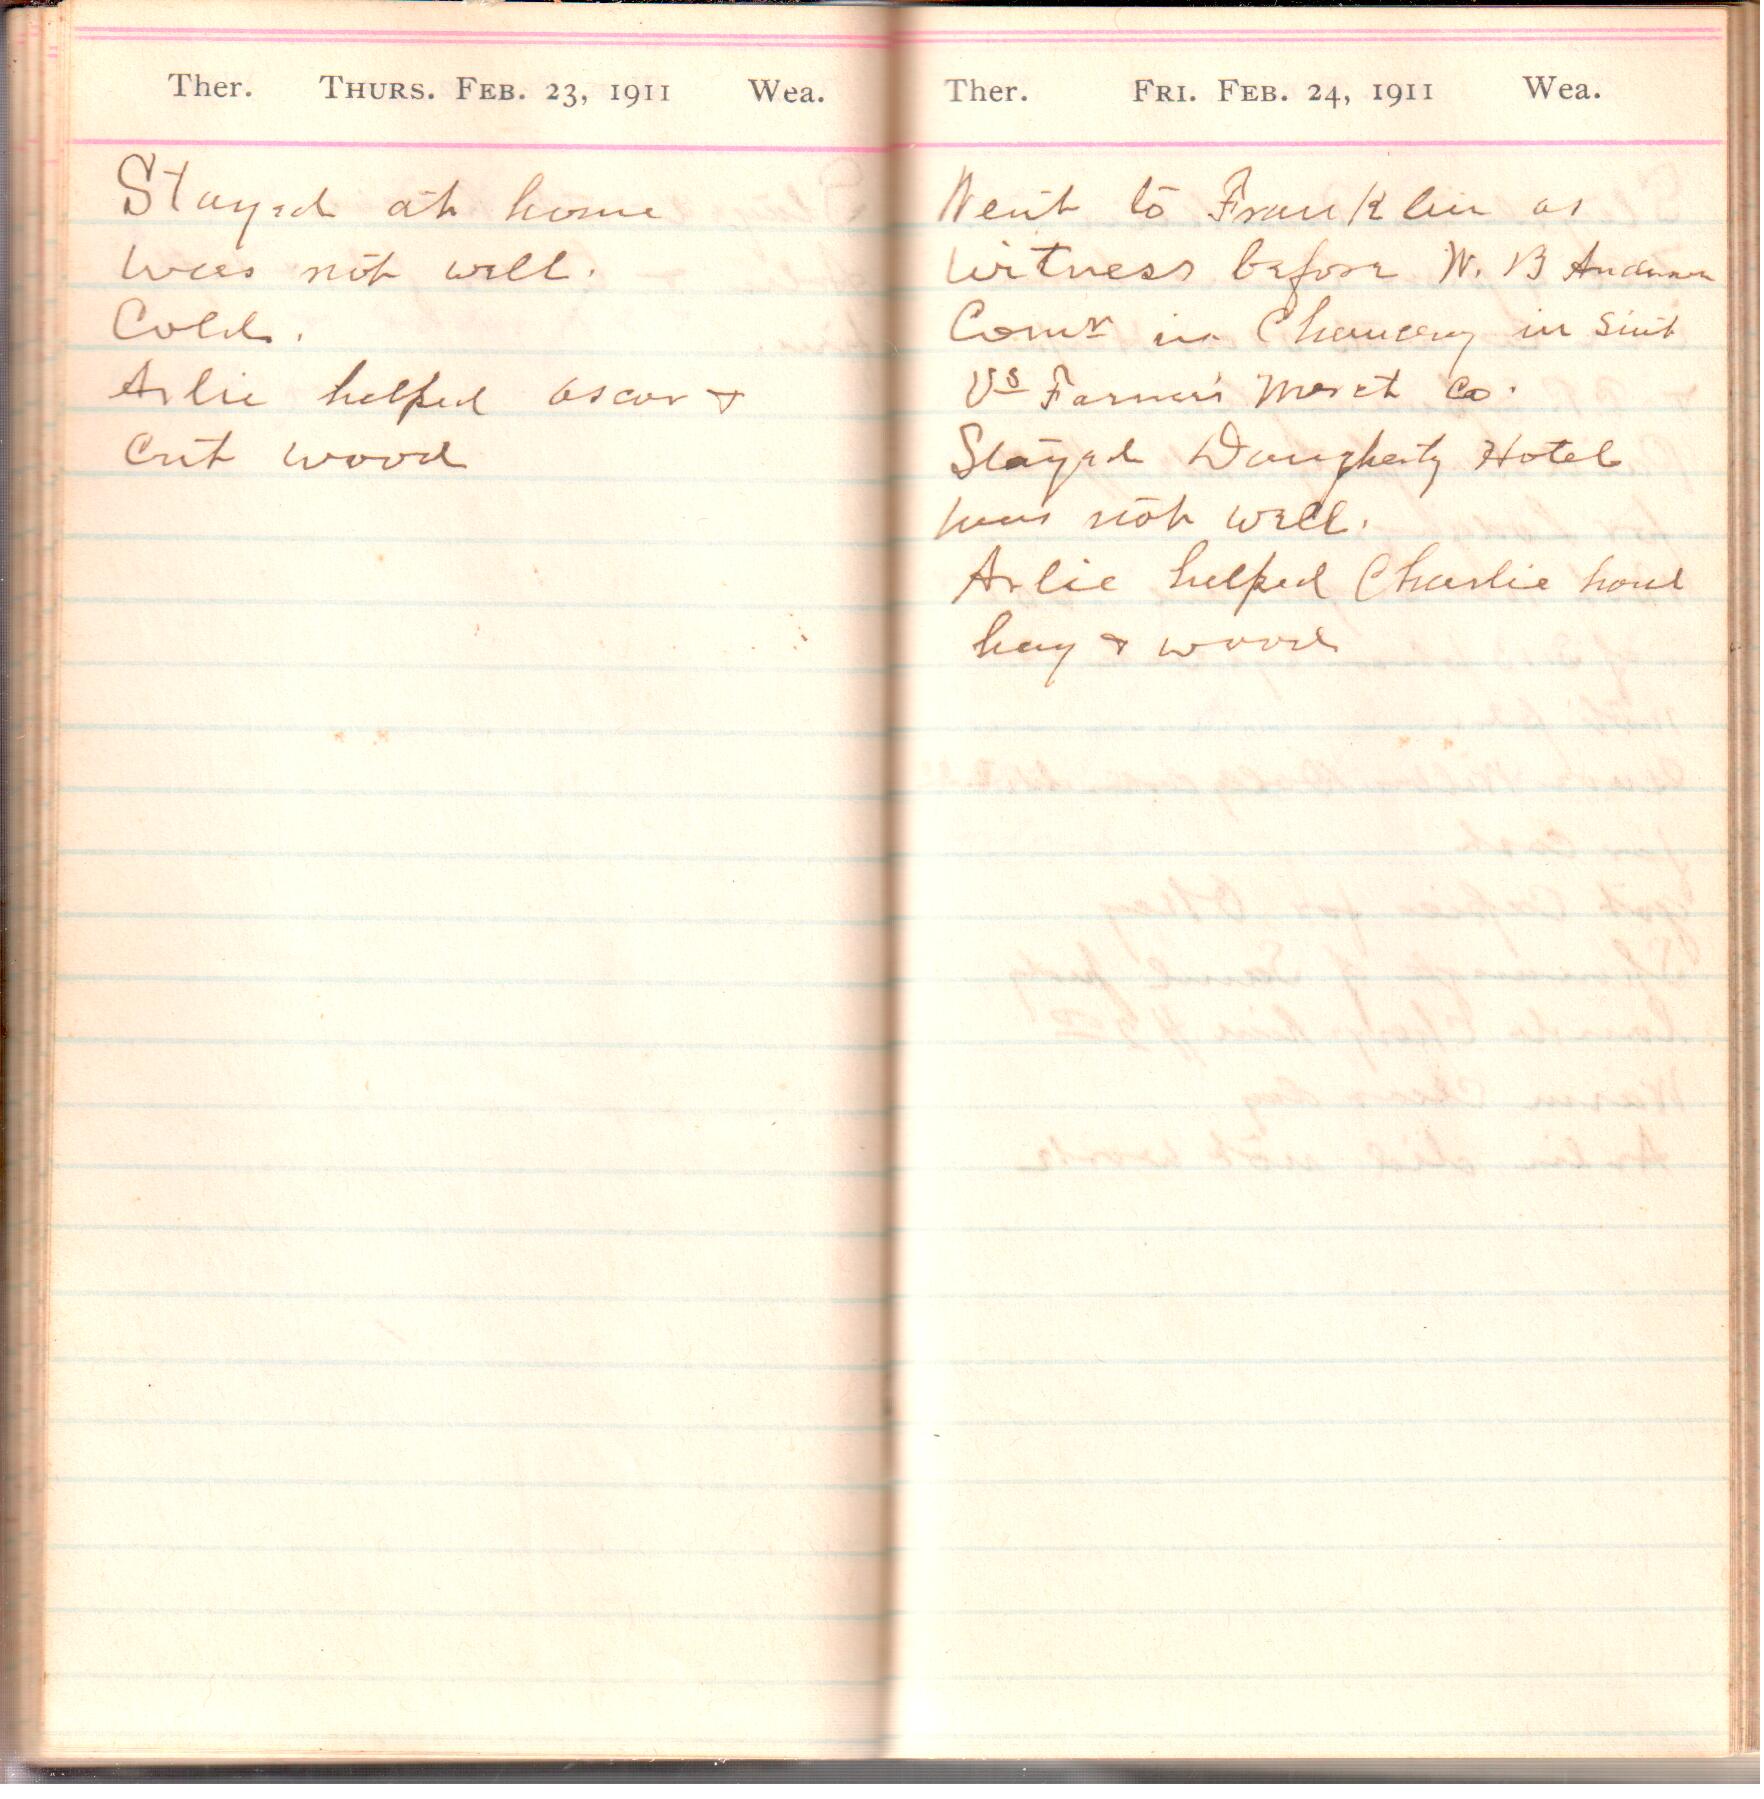 Ther. THURS. FEB. 23, 1911 Wea.
Stayed at home
was not well.
Cold.
Arlie helped Oscar &
cut wood
Ther. FRI. FEB. 24, 1911 Wea.
Went to Franklin as
witness before W. B Anderson
Comr in Chancery in suit
Vs Farmer's Merct Co.
Stayed Daugherty Hotel
was not well.
Arlie helped Charlie houl
hay & wood